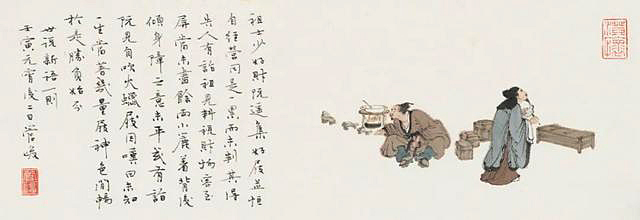 祖士少好財阮遥集好屐並恒
自經營同是一累而未判其得
失人有詣祖見料視財物客至
屏當未盡餘兩小簏著背後
傾身障之意未平或有詣
阮見自吹火蠟屐因嘆曰未知
一生當著幾量屐神色閑暢
於是勝負始分
世说新语一則
壬寅元宵後二日管峻